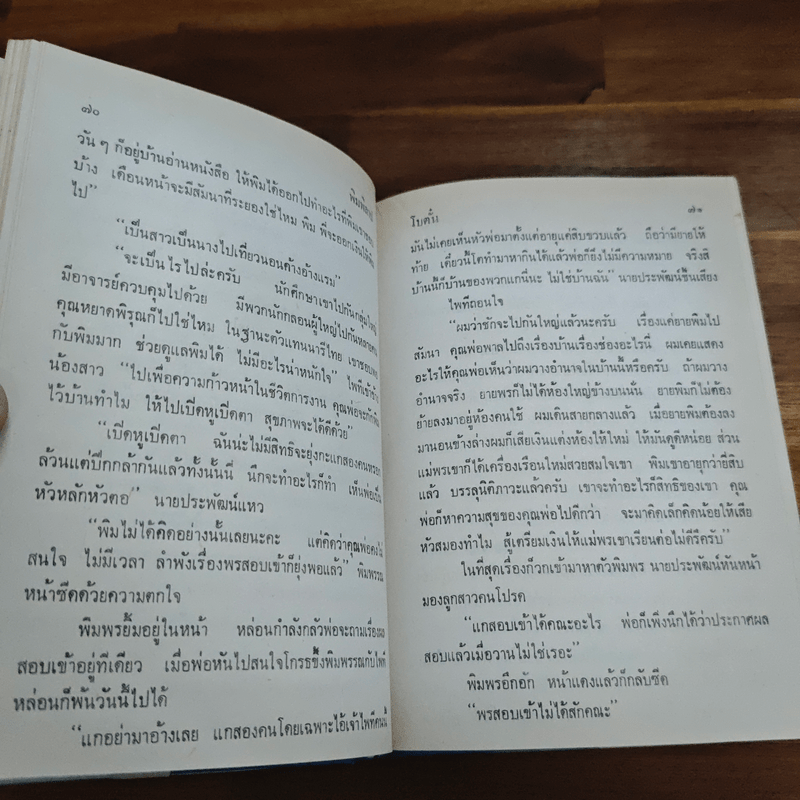 ๗๐
วัน ๆ ก็อยู่บ้านอ่านหนังสือ ให้พิมได้ออกไปทำอะไรที่พิมเขาชอบ
บ้าง เดือนหน้าจะมีสัมนาที่ระยองใช่ไหม พิม พี่จะออกเงินให้
ไป”
“เป็นสาวเป็นนางไปเที่ยวนอนค้างอ้างแรม”
“จะเป็นไรไปล่ะครับ นักศึกษาเขาไปกันกลุ่มใหญ่
มีอาจารย์ควบคุมไปด้วย มีพวกนักกลอนผู้ใหญ่ไปกันหลายคน
คุณหยาดพิรุณก็ไปใช่ไหม ในฐานะตัวแทนนารีไทย เขาชอบพอ
กับพิมมาก ช่วยดูแลพิมได้ ไม่มีอะไรน่าหนักใจ” ไพทีเข้าข้าง
น้องสาว “ไปเพื่อความก้าวหน้าในชีวิตการงาน คุณพ่อจะกักพิม
ไว้บ้านทำไม ให้ไปเปิดหูเปิดตา สุขภาพจะได้ดีด้วย”
“เปิดหูเปิดตา ฉันน่ะไม่มีสิทธิจะยุ่งกะแกสองคนหรอก
ล้วนแต่ปีกกล้ากันแล้วทั้งนั้นนี่ นึกจะทำอะไรก็ทำ เห็นพ่อเป็น
หัวหลักหัวตอ” นายประพัฒน์แหว
“พิมไม่ได้คิดอย่างนั้นเลยนะคะ แต่คิดว่าคุณพ่อคงไม่
สนใจ ไม่มีเวลา ลำพังเรื่องพรสอบเข้าก็ยุ่งพอแล้ว” พิมพรรณ
หน้าซีดด้วยความตกใจ
พิมพรยิ้มอยู่ในหน้า หล่อนกำลังกลัวพ่อจะถามเรื่องผล
สอบเข้าอยู่ทีเดียว เมื่อพ่อหันไปสนใจโกรธขึ้งพิมพรรณกับไพที
หล่อนก็พ้นวันนี้ไปได้
“แกอย่ามาอ้างเลย แกสองคนโดยเฉพาะไอ้เจ้าไพทีคนนี้
โบตั๋น
๗๑
มันไม่เคยเห็นหัวพ่อมาตั้งแต่อายุแค่สิบขวบแล้ว ถือว่ามียายให้
ท้าย เดี๋ยวนี้โตทำมาหากินได้แล้วพ่อก็ยิ่งไม่มีความหมาย จริงสิ
บ้านนี้ก็บ้านของพวกแกนี่นะ ไม่ใช่บ้านฉัน” นายประพัฒน์ขึ้นเสียง
ไพทีถอนใจ
“ผมว่าชักจะไปกันใหญ่แล้วนะครับ เรื่องแค่ยายพิมไป
สัมนา คุณพ่อพาลไปถึงเรื่องบ้านเรื่องช่องอะไรนี่ ผมเคยแสดง
อะไรให้คุณพ่อเห็นว่าผมวางอำนาจในบ้านนี้หรือครับ ถ้าผมวาง
อำนาจจริง ยายพรก็ไม่ได้ห้องใหญ่ข้างบนนั่น ยายพิมก็ไม่ต้อง
ย้ายลงมาอยู่ห้องคนใช้ ผมเดินสายกลางแล้ว เมื่อยายพิมต้องลง
มานอนข้างล่างผมก็เสียเงินแต่งห้องให้ใหม่ ให้มันดูดีหน่อย ส่วน
แม่พรเขาก็ได้เครื่องเรือนใหม่สวยสมใจเขา พิมเขาอายุกว่ายี่สิบ
แล้ว บรรลุนิติภาวะแล้วครับ เขาจะทำอะไรก็สิทธิของเขา คุณ
พ่อก็หาความสุขของคุณพ่อไปดีกว่า จะมาคิดเล็กคิดน้อยให้เสีย
หัวสมองทำไม สู้เตรียมเงินให้แม่พรเขาเรียนต่อไม่ดีรึครับ”
ในที่สุดเรื่องก็วกเข้ามาหาตัวพิมพร นายประพัฒน์หันหน้า
มองลูกสาวคนโปรด
“แกสอบเข้าได้คณะอะไร พ่อก็เพิ่งนึกได้ว่าประกาศผล
สอบแล้วเมื่อวานไม่ใช่เรอะ”
พิมพรอึกอัก หน้าแดงแล้วก็กลับซีด
“พรสอบเข้าไม่ได้สักคณะ”